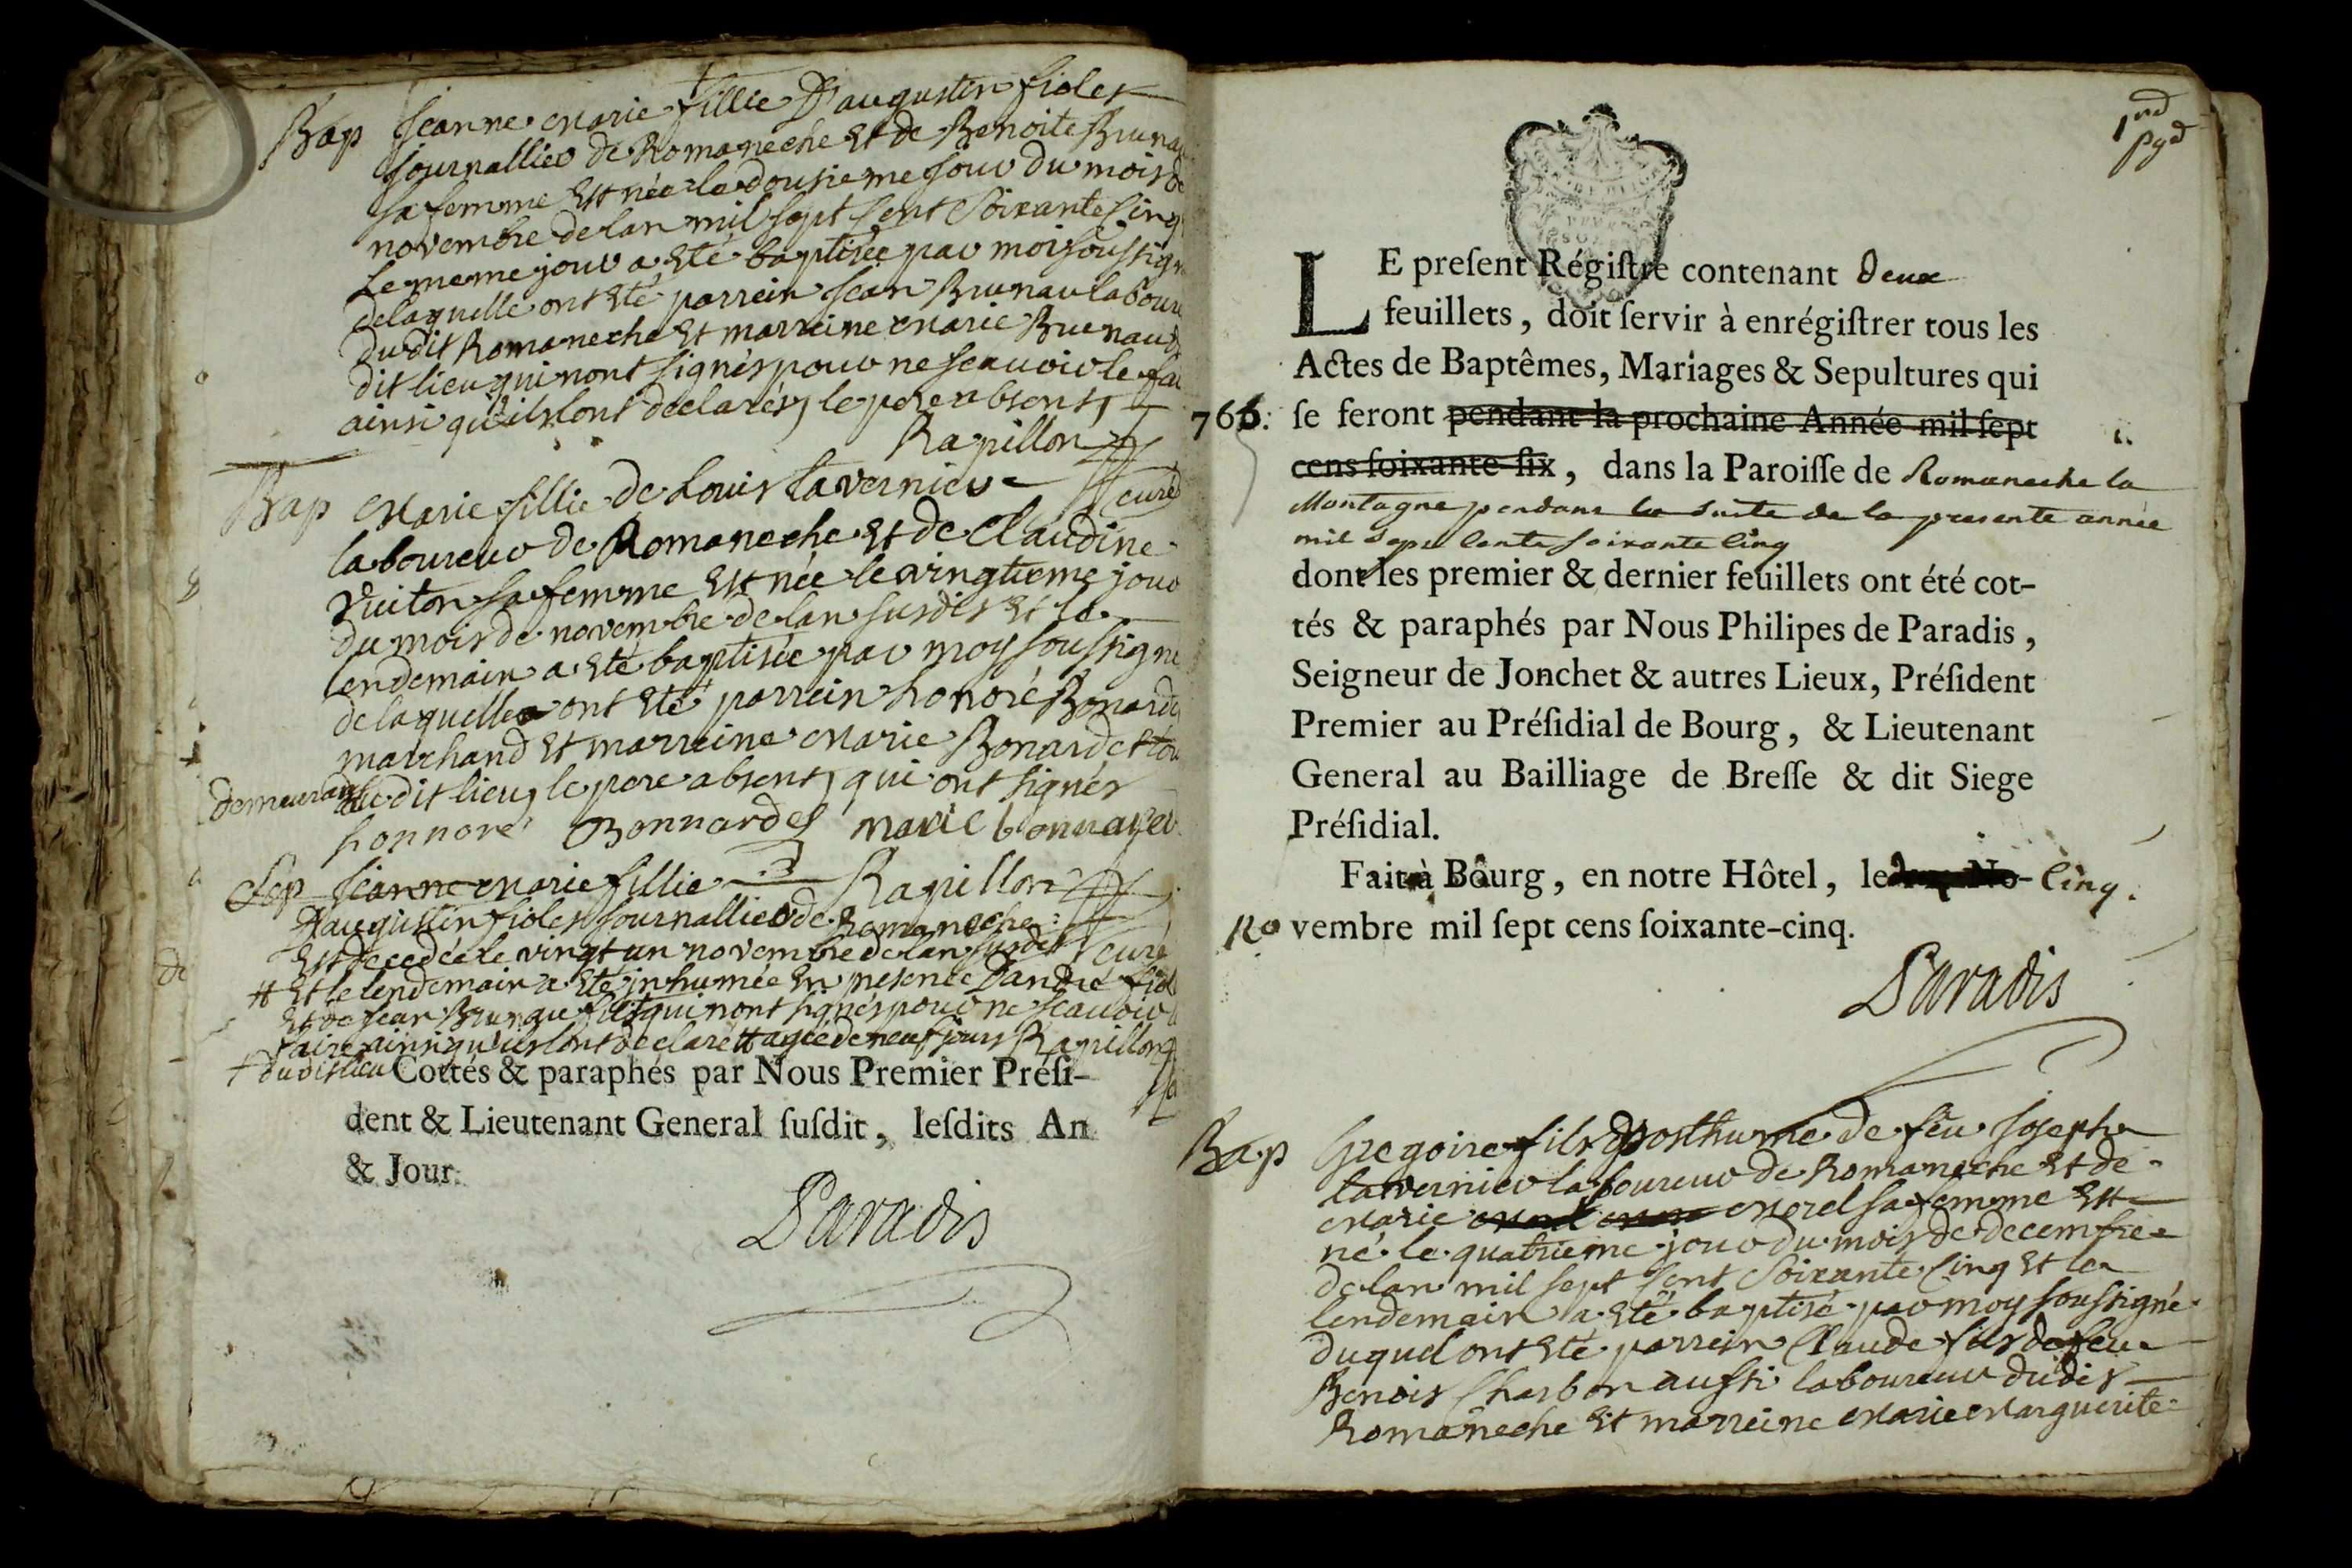 Bap Jeanne Marie fillie D'augustin fioles
journallier de Romaneche Et de Benoite Bruna
sa femme Est née le dousieme jour du mois de
novembre de lan mil sept cent Soixante Cinq
Le meme jour a Eté baptisée par moi soussign
delaquelle ont Eté parrein Jean Brunau laboure
du dit Romaneche Et marreine Marie Brunau d
dit lieu, qui nont signés pour ne scauoir le fai
ainsi qu'ils lont declarés, le pere absent,
Rapillon
curé
Bap Marie fillie de Louis tavernier
laboureur de Romaneche Et de Claudine
Vuiton sa femme Est née le vingtieme jour
du mois de novembre de lan susdit Et le
lendemain a Eté baptisée par moy soussigne
delaquelle ont Eté parrein honoré Bonarde
marchand Et marreine Marie Bonardet tou
demeurant du dit lieu, le pere absent, qui ont signés
honnore Bonnardel marie bonnardel
Sep Jeanne Marie fillie Rapillon
D'augustin fioles journallier de Romaneche curé
Est decedée le vingt un novembre de lan susdit
# Et le lendemain a Eté inhumée En presence D'andré fiol
Et de Jean qui nont signés pour ne scauoir
faire ainsi qu'ils lont declaré # agée de neuf jours Rapillon
+ du dit lieu
Cottés & paraphés par Nous Premier Préſi-
dent & Lieutenant General ſuſdit, leſdits An
& Jour.
Paradis
1
pgd
LE preſent Régiſtre contenant Deux
feuillets, doit ſervir à enrégiſtrer tous les
Actes de Baptêmes, Mariages & Sepultures qui
766: ſe feront pendant la prochaine Année mil ſept
cens ſoixante-ſix, dans la Paroiſſe de Romaneche la
Montagne pendant la suite de la presente année
mil sept cents soixante cinq
dont les premier & dernier feuillets ont été cot-
tés & paraphés par Nous Philipes de Paradis,
Seigneur de Jonchet & autres Lieux, Préſident
Premier au Préſidial de Bourg, & Lieutenant
General au Bailliage de Breſſe & dit Siege
Préſidial.
Fait à Bourg, en notre Hôtel, le No- Cinq.
No vembre mil ſept cens ſoixante-cinq.
Paradis
Bap Gregoire fils posthume de feu Joseph
tavernier laboureur de Romaneche Et de
Marie Morel sa femme Est
né le quatrieme jour du mois de decembre
de lan mil sept Cent Soixante Cinq Et le
lendemain a Eté baptisé par moy soussigné
duquel ont Eté parrein Claude fils de feu
Benois Charbon aussi laboureur du dit
Romaneche Et marreine Marie Marguerite